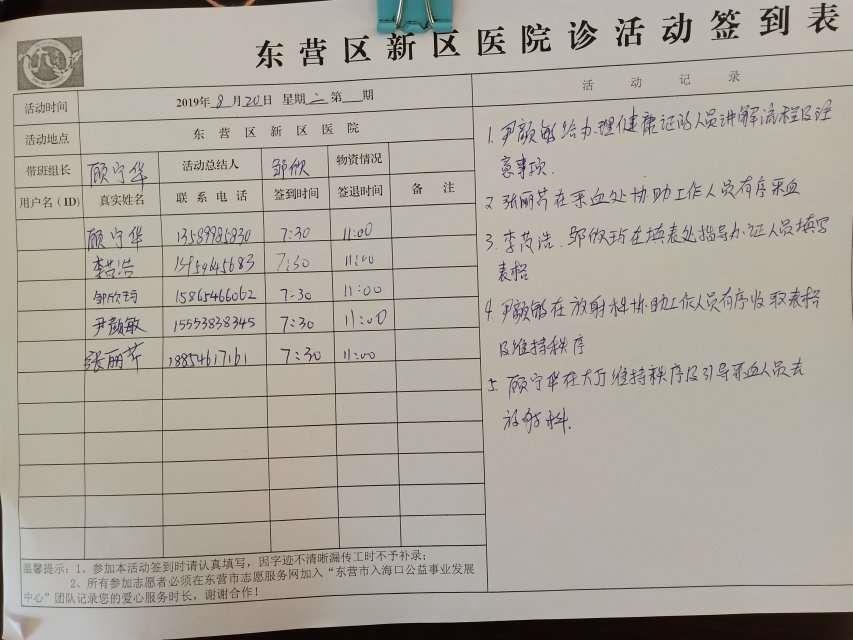 东营区新区医院诊活动签到表
活动时间 2019年8月20日 星期二 第 期
活动地点 东营区新区医院
带班组长 顾宁华 活动总结人 邹欣 物资情况
用户名（ID） 真实姓名 联系电话 签到时间 签退时间 备注
顾宁华 13589985830 7:30 11:00
李茂浩 15954645683 7:30 11:00
邹欣玙 15865466062 7:30 11:00
尹颜敏 15553838345 7:30 11:00
张丽芹 18854617161 7:30 11:00
温馨提示：1、参加本活动签到时请认真填写，因字迹不清晰漏传工时不予补录；
2、所有参加志愿者必须在东营市志愿服务网加入“东营市入海口公益事业发展
中心”团队记录您的爱心服务时长，谢谢合作！
活动记录
1. 尹颜敏给办理健康证的人员讲解流程及注
意事项.
2 张丽芹在采血处协助工作人员有序采血
3. 李茂浩. 邹欣玙在填表处指导办证人员填写
表格
4. 尹颜敏在放射科协助工作人员有序收取表格
及维持秩序
5. 顾宁华在大厅维持秩序及引导采血人员去
放射科.